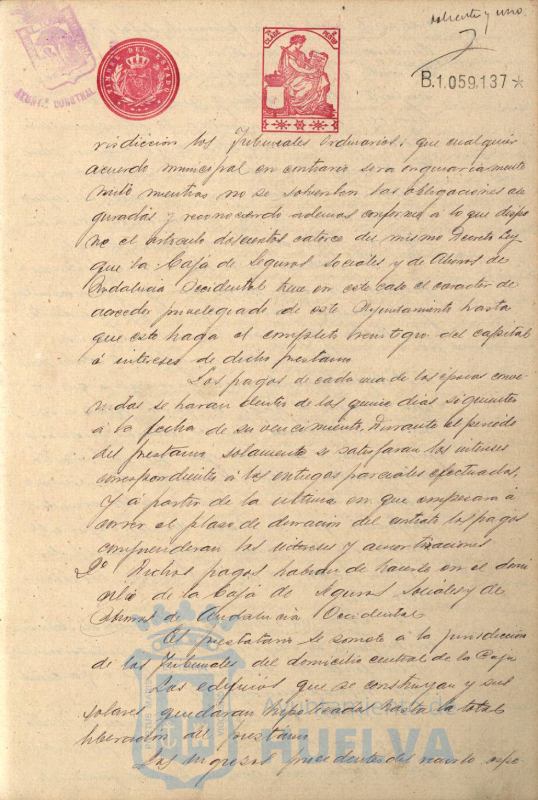 ochenta y uno
TIMBRE DEL ESTADO
B.1.059,137*
risdicción los Tribunales Ordinarios; que cualquier
acuerdo municipal en contrario sera originariamente
nulo mientras no se solventen las obligaciones ase
guradas y reconociendo además conforme a lo que dispo
ne el artículo doscientos catorce del mismo Decreto Ley
que la Caja de Seguros Sociales y de Ahorros de
Andalucia Occidental tiene en este caso el caracter de
acreedor privilegiado de este Ayuntamiento hasta
que este haga el completo reintegro del capital
é intereses de dicho prestamo
Los pagos de cada una de las épocas conve
nidas se haran dentro de los quince dias siguientes
á la fecha de su vencimiento. Durante el periodo
del prestamo solamente se satisfaran los intereses
correspondientes á las entregas parciales efectuadas,
y á partir de la ultima en que empezara á
correr el plazo de duracion del contrato los pagos
comprenderan los intereses y amortizaciones
2º Dichos pagos habran de hacerse en el domi
cilio de la Caja de Seguros Sociales y de
Ahorros de Andalucia Occidental
El prestatario se somete á la jurisdicción
de los Tribunales del domicilio central de la Caja
Los edificios que se construyan y sus
solares quedarán hipotecados hasta la total
liberación del prestamo
Los ingresos procedentes del nuevo
HUELVA